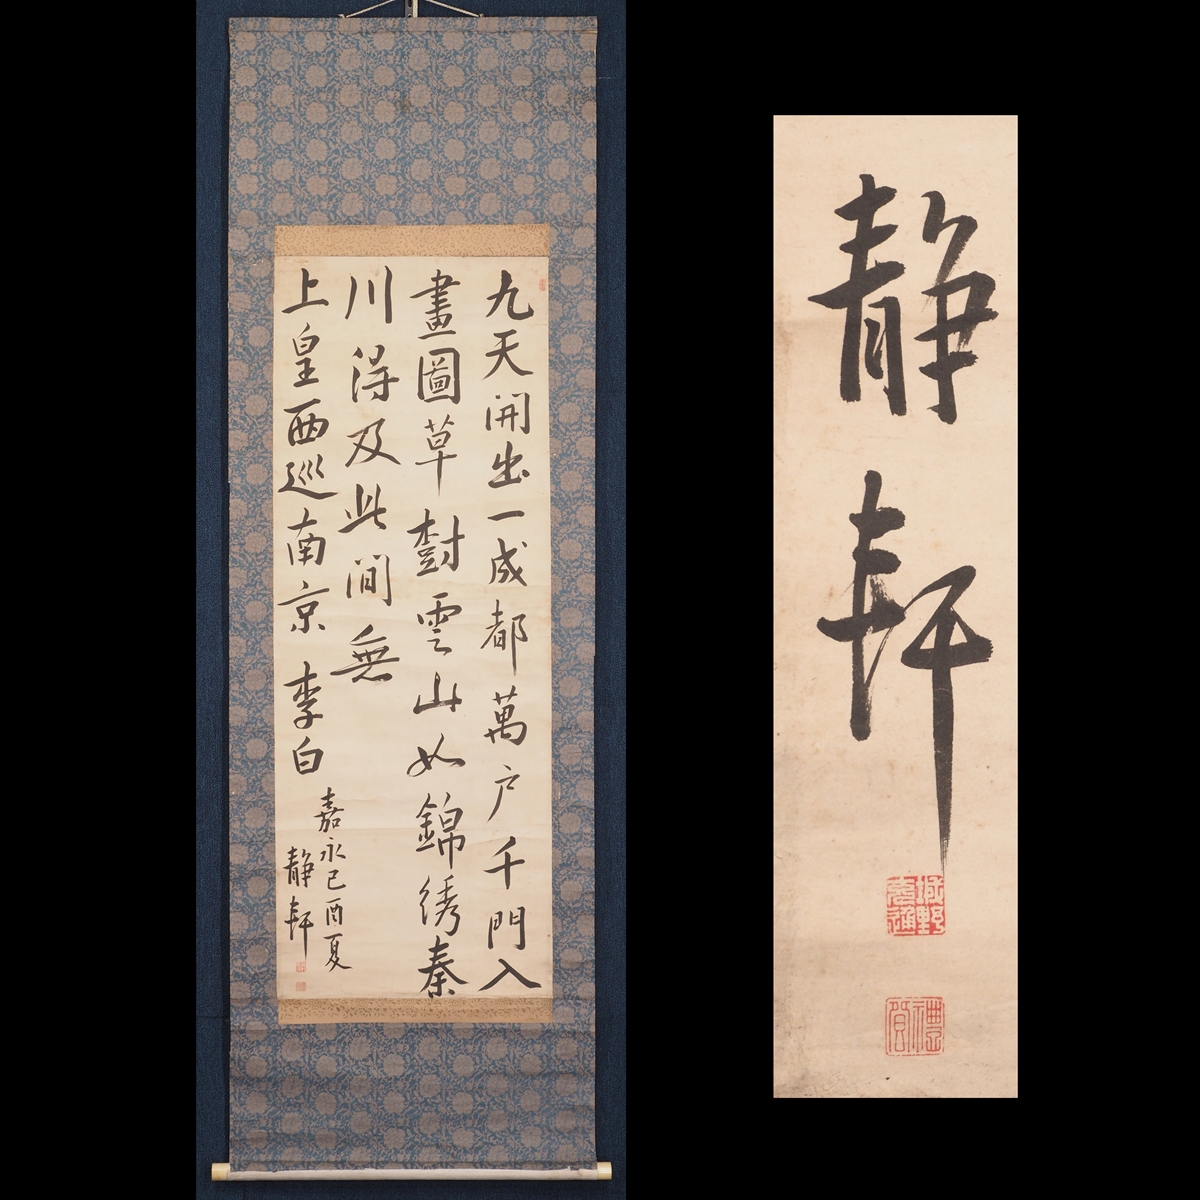 九天開出一成都萬户千門入
畫圖草樹雲山如錦綉秦
川得及此間無
上皇西巡南京 李白
嘉永己酉夏
静軒
静軒